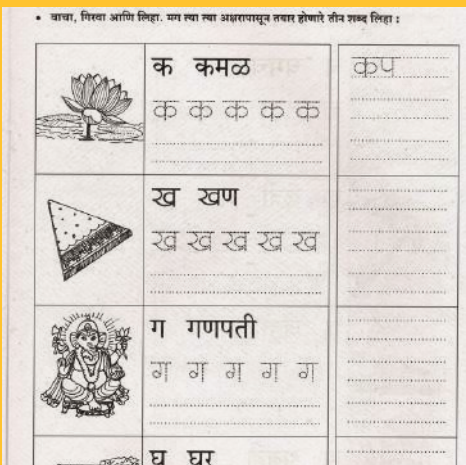 • वाचा, गिरवा आणि लिहा. मग त्या त्या अक्षरापासून तयार होणारे तीन शब्द लिहा :
क कमळ
क क क क क
कप
ख खण
ख ख ख ख ख
ग गणपती
ग ग ग ग ग
घ घर